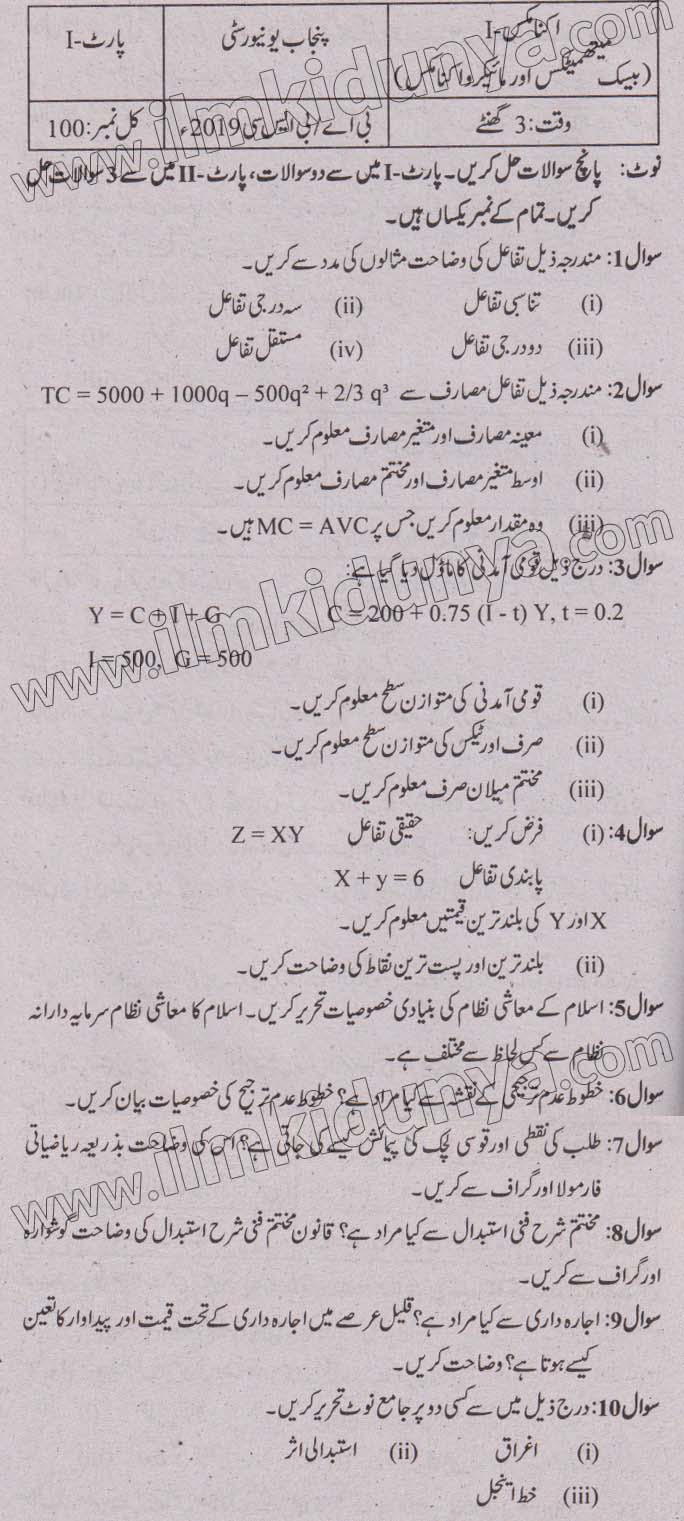 اکنامکس-I
پنجاب یونیورسٹی
پارٹ-I
(بیسک میتھمیٹکس اور مائیکرو اکنامکس)
وقت: 3 گھنٹے
بی اے/بی ایس سی 2019ء
کل نمبر: 100
نوٹ: پانچ سوالات حل کریں۔ پارٹ-I میں سے دو سوالات، پارٹ-II میں سے 3 سوالات حل
کریں۔ تمام کے نمبر یکساں ہیں۔
سوال1: مندرجہ ذیل تفاعل کی وضاحت مثالوں کی مدد سے کریں۔
(i) تناسبی تفاعل (ii) سہ درجی تفاعل
(iii) دو درجی تفاعل (iv) مستقل تفاعل
سوال2: مندرجہ ذیل تفاعل مصارف سے TC = 5000 + 1000q – 500q² + 2/3 q³
(i) معینہ مصارف اور متغیر مصارف معلوم کریں۔
(ii) اوسط متغیر مصارف اور مختتم مصارف معلوم کریں۔
(iii) وہ مقدار معلوم کریں جس پر MC = AVC ہیں۔
سوال3: درج ذیل قومی آمدنی کا ماڈل دیا گیا ہے:
Y = C + I + G C = 200 + 0.75 (I - t) Y, t = 0.2
I = 500, G = 500
(i) قومی آمدنی کی متوازن سطح معلوم کریں۔
(ii) صرف اور ٹیکس کی متوازن سطح معلوم کریں۔
(iii) مختتم میلان صرف معلوم کریں۔
سوال4: (i) فرض کریں: حقیقی تفاعل Z = XY
پابندی تفاعل X + y = 6
X اور Y کی بلند ترین قیمتیں معلوم کریں۔
(ii) بلند ترین اور پست ترین نقاط کی وضاحت کریں۔
سوال5: اسلام کے معاشی نظام کی بنیادی خصوصیات تحریر کریں۔ اسلام کا معاشی نظام سرمایہ دارانہ
نظام سے کس لحاظ سے مختلف ہے۔
سوال6: خطوط عدم ترجیحی کے نقشہ سے کیا مراد ہے؟ خطوط عدم ترجیح کی خصوصیات بیان کریں۔
سوال7: طلب کی نقطی اور قوسی لچک کی پیمائش کیسے کی جاتی ہے؟ اس کی وضاحت بذریعہ ریاضیاتی
فارمولا اور گراف سے کریں۔
سوال8: مختتم شرح فنی استبدال سے کیا مراد ہے؟ قانون مختتم فنی شرح استبدال کی وضاحت گوشوارہ
اور گراف سے کریں۔
سوال9: اجارہ داری سے کیا مراد ہے؟ قلیل عرصے میں اجارہ داری کے تحت قیمت اور پیداوار کا تعین
کیسے ہوتا ہے؟ وضاحت کریں۔
سوال10: درج ذیل میں سے کسی دو پر جامع نوٹ تحریر کریں۔
(i) اغراق (ii) استبدالی اثر
(iii) خط اینجل
www.ilmkidunya.com
www.ilmkidunya.com
www.ilmkidunya.com